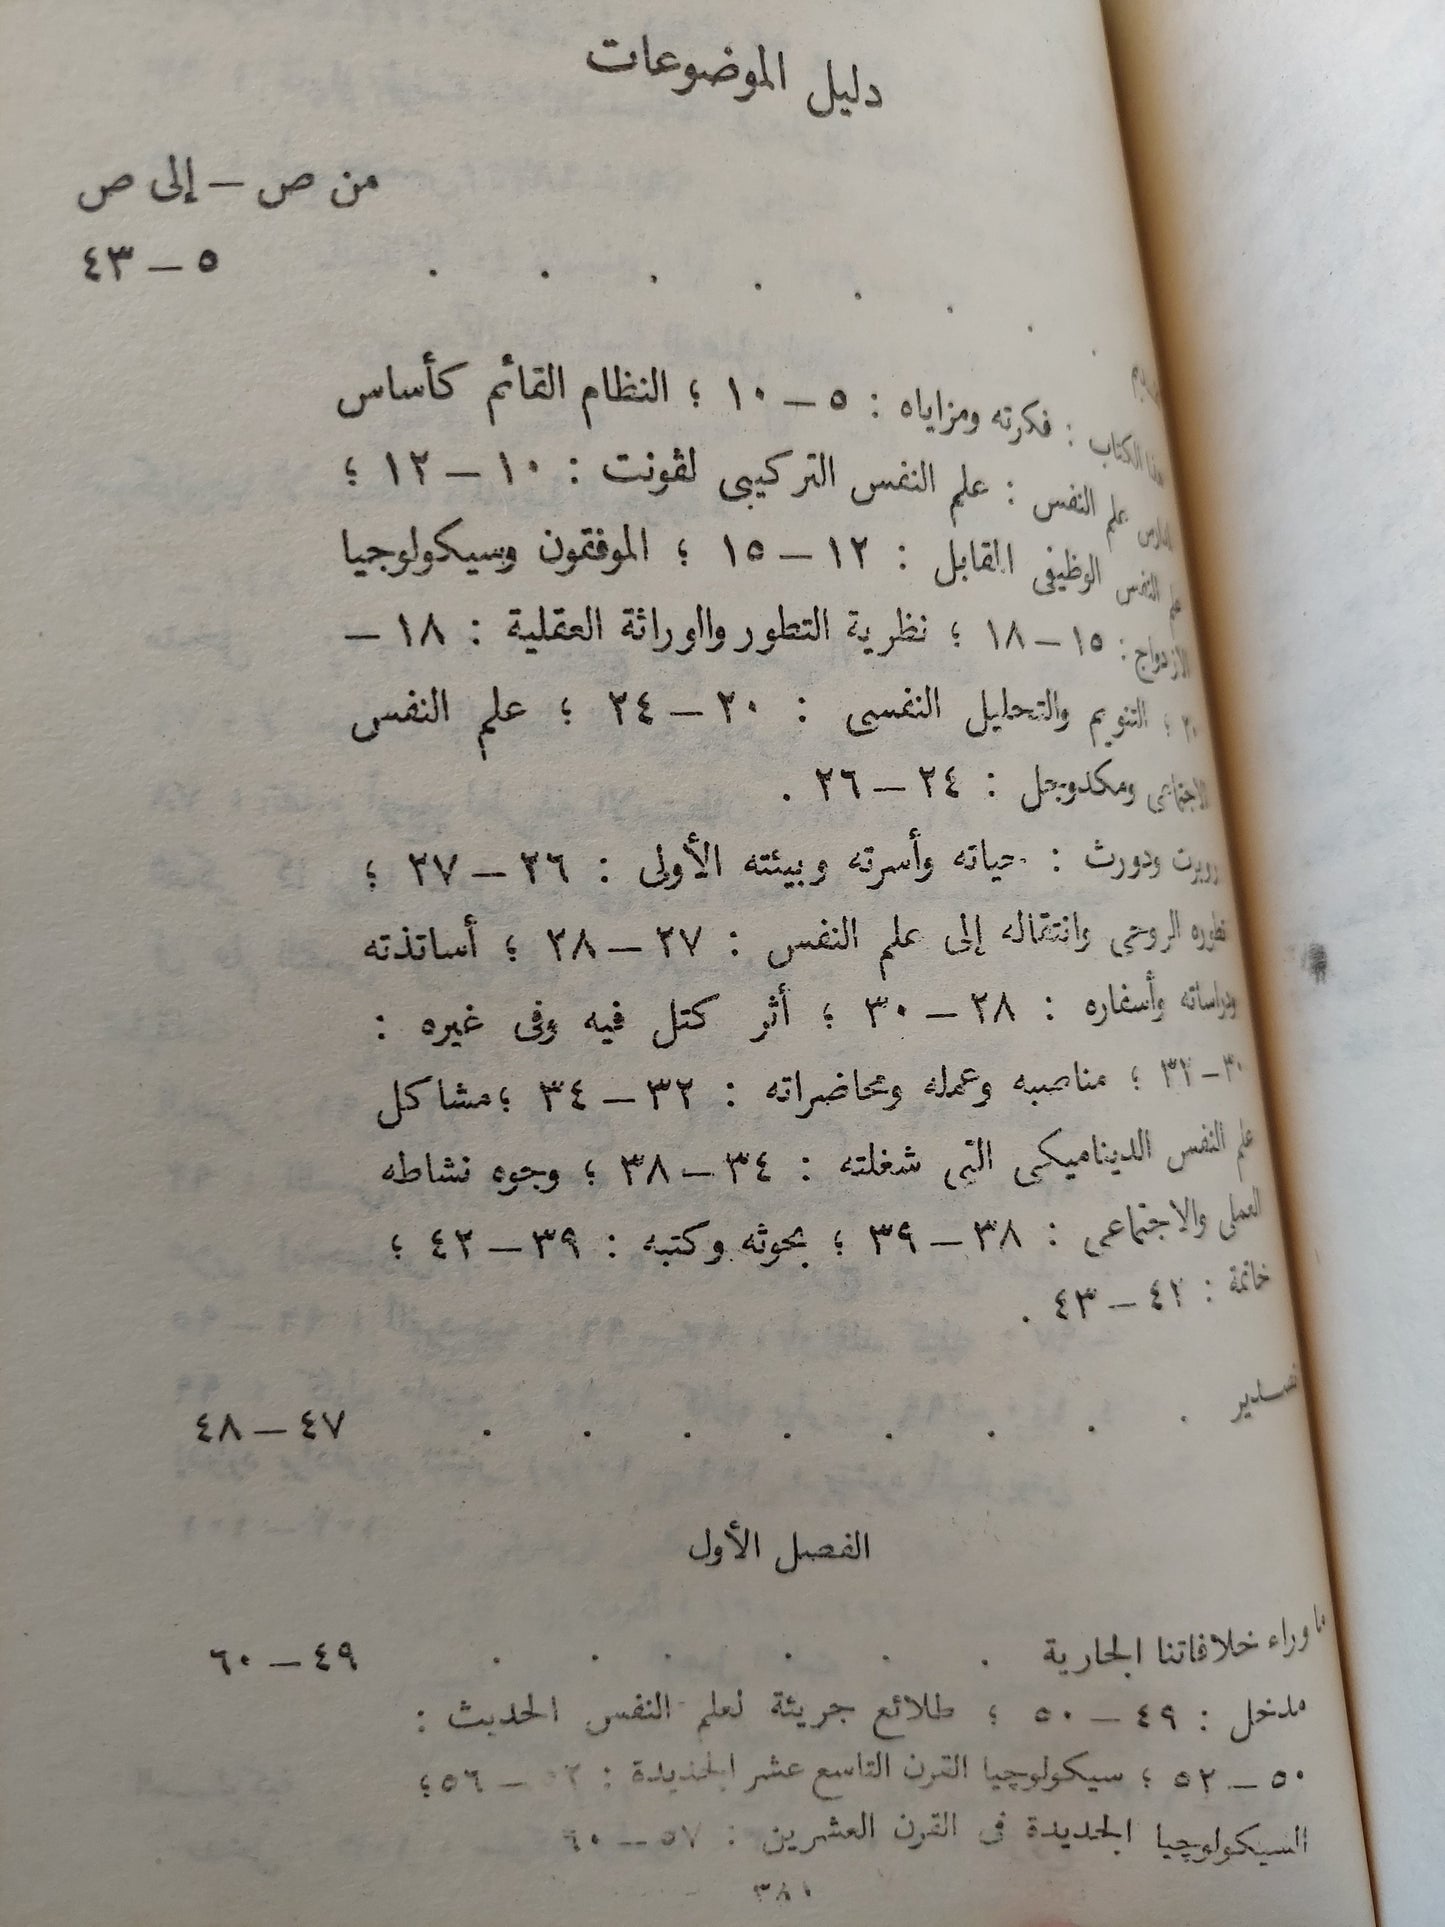 دليل الموضوعات
من ص — إلى ص
٥ — ٤٣
هذا الكتاب : فكرته ومزاياه : ٥ — ١٠ ؛ النظام القائم كأساس
لمدارس علم النفس : علم النفس التركيبى لڤونت : ١٠ — ١٢ ؛
علم النفس الوظيفى المقابل : ١٢ — ١٥ ؛ الموفقون وسيكولوجيا
الازدواج : ١٥ — ١٨ ؛ نظرية التطور والوراثة العقلية : ١٨ —
٢٠ ؛ التنويم والتحليل النفسى : ٢٠ — ٢٤ ؛ علم النفس
الاجتماعى ومكدوجل : ٢٤ — ٢٦ .
روبرت ودورث : حياته وأسرته وبيئته الأولى : ٢٦ — ٢٧ ؛
تطوره الروحى وانتقاله إلى علم النفس : ٢٧ — ٢٨ ؛ أساتذته
ودراساته وأسفاره : ٢٨ — ٣٠ ؛ أثر كتل فيه وفى غيره :
٣٠ — ٣٢ ؛ مناصبه وعمله ومحاضراته : ٣٢ — ٣٤ ؛ مشاكل
علم النفس الديناميكى التى شغلته : ٣٤ — ٣٨ ؛ وجوه نشاطه
العملى والاجتماعى : ٣٨ — ٣٩ ؛ بحوثه وكتبه : ٣٩ — ٤٢ ؛
خاتمة : ٤٢ — ٤٣ .
تصدير . . . . . . . . ٤٧ — ٤٨
الفصل الأول
ما وراء خلافاتنا الجارية . . . . . . ٤٩ — ٦٠
مدخل : ٤٩ — ٥٠ ؛ طلائع جريئة لعلم النفس الحديث :
٥٠ — ٥٢ ؛ سيكولوچيا القرن التاسع عشر الجديدة : ٥٢ — ٥٦ ؛
السيكولوچيا الجديدة فى القرن العشرين : ٥٧ — ٦٠
٣٨١